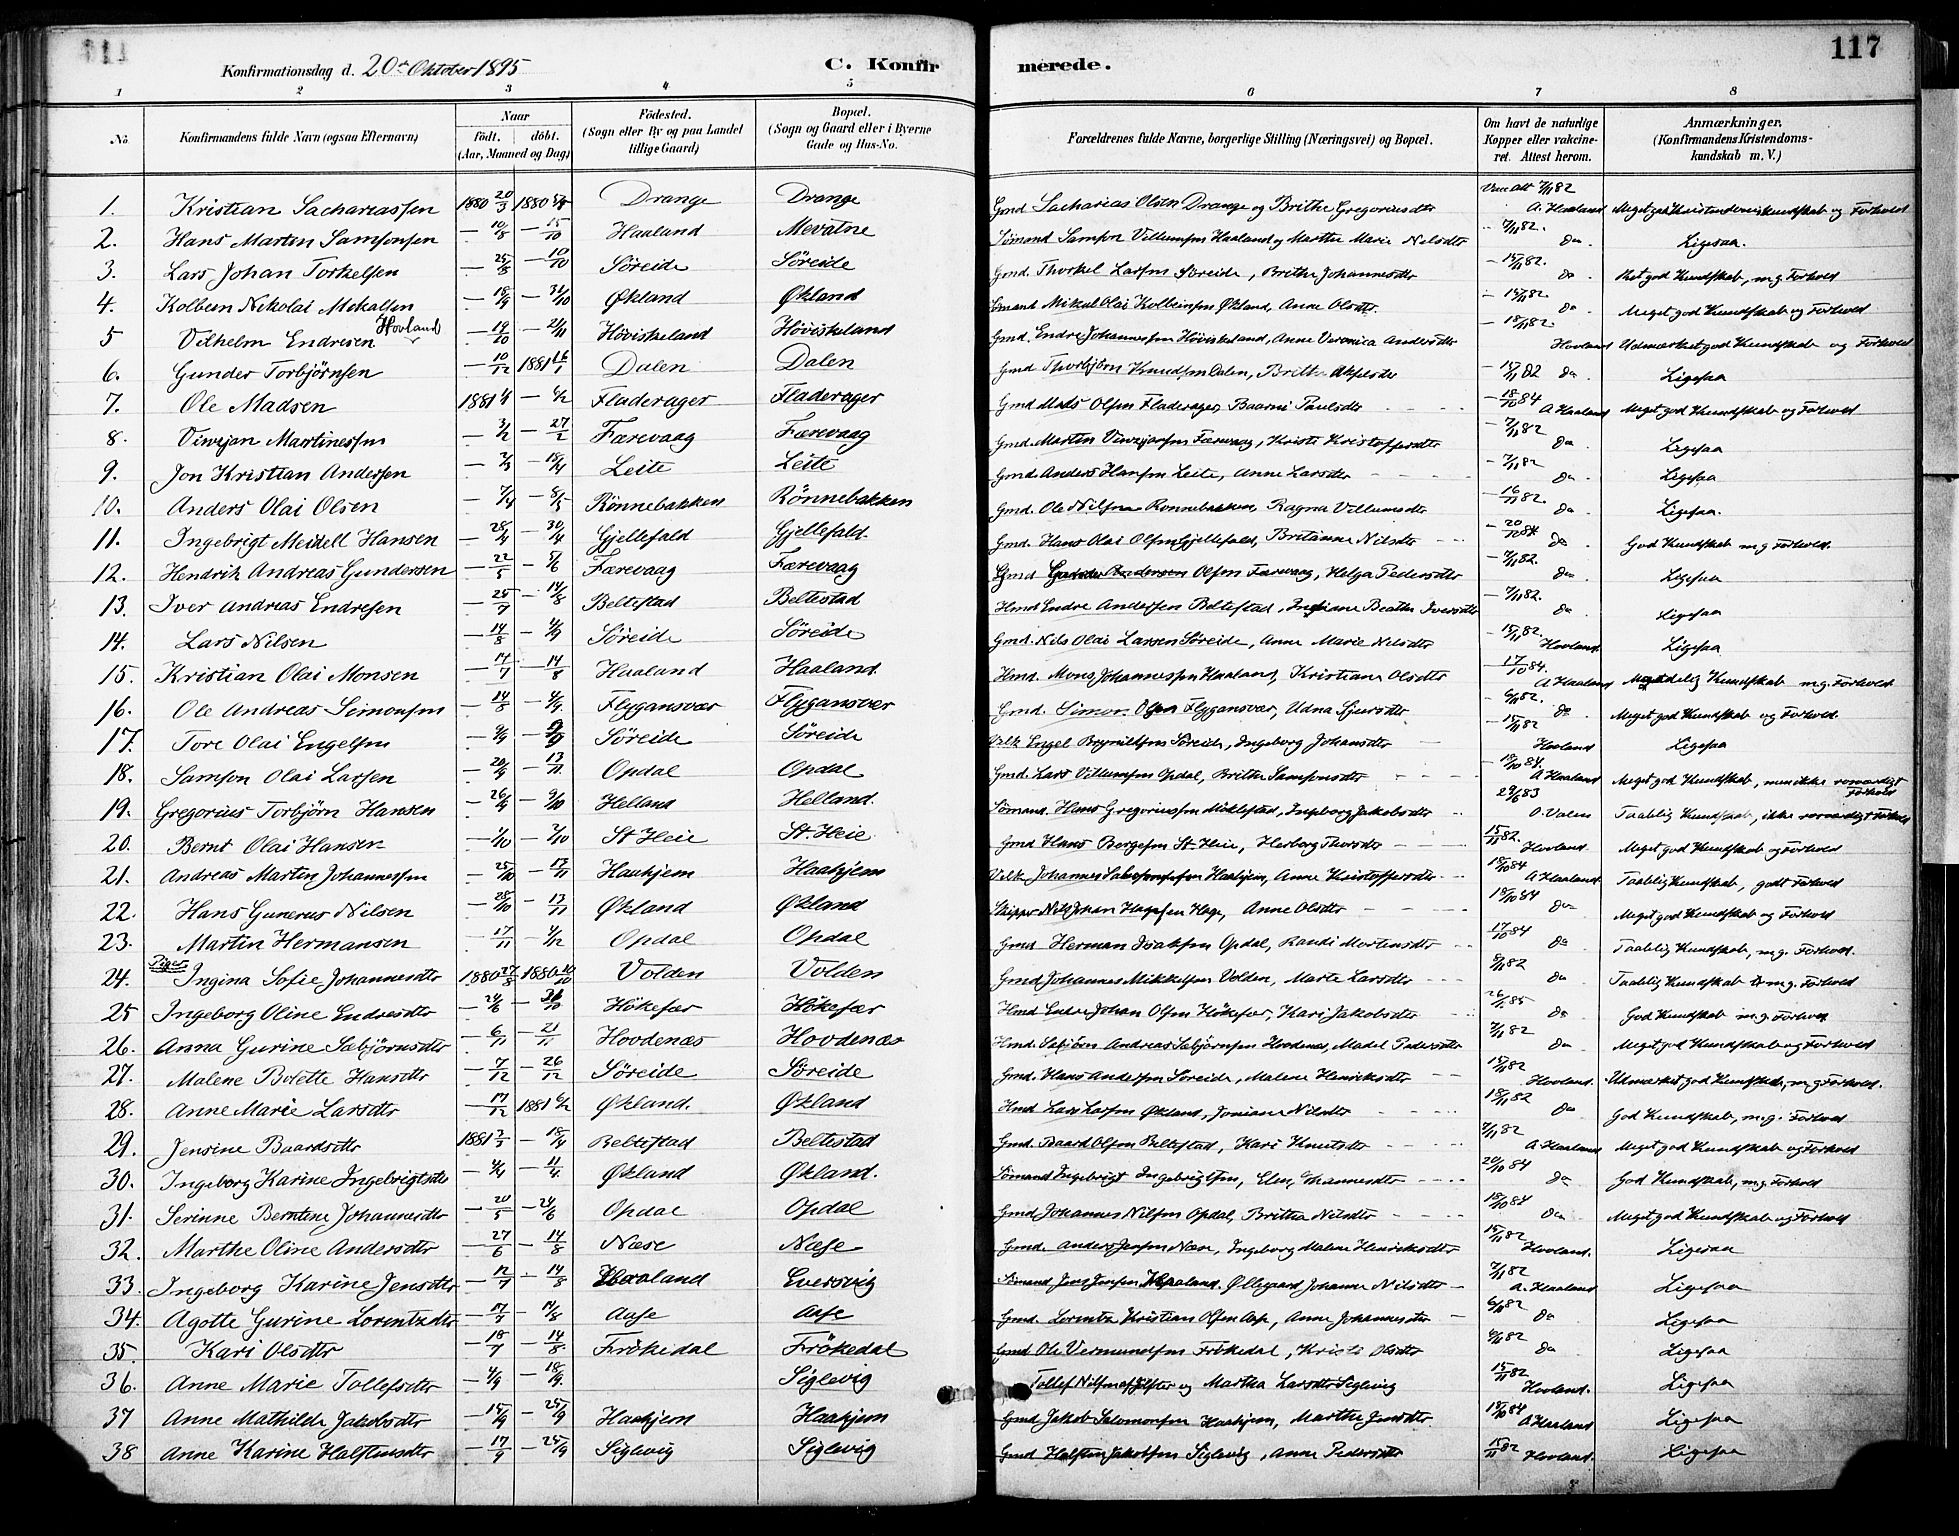 117
Konfirmationsdag d. 20de Oktober 1895
C. Konfir merede.
1 2 3 4 5 6 7 8
No.
Konfirmandens fulde Navn (ogsaa Efternavn)
Naar
födt. döbt.
(Aar, Maaned og Dag)
Födested.
(Sogn eller By og paa Landet
tillige Gaard)
Bopæl.
(Sogn og Gaard eller i Byerne
Gade og Hus-No.
Forældrenes fulde Navne, borgerlige Stilling (Næringsvei) og Bopæl.
Om havt de naturlige
Kopper eller vakcine-
ret. Attest herom.
Anmærkninger.
(Konfirmandens Kristendoms-
kundskab m. V.)
1. Kristian Sachariassen 1880 20/3 1880 Drange Drange Gmd Sacharias Olsen Drange og Brithe Gregoriusdtr A. Haaland Meget god Kristendomskundskab og Forhold
2. Hans Martin Samsonsen – 10/8 – 15/10 Haaland Mevatne Sömand Samson Villumsen Haaland og Marthe Marie Nilsdtr Do Ligesaa.
3. Lars Johan Torkelsen – 25/8 – 10/10 Söreide Söreide Gmd. Thorkel Larsen Söreide, Brithe Johannesdtr – 15/11 82. Do god Kundskab, m.g. Forhold
4. Kolbein Nikolai Mikalsen – 18/9 – 31/10 Økland Økland Sömand Mikal Olai Kolbeinsen Økland, Anne Olsdtr. – 15/11 82 Do Meget god Kundskab og Forhold
5 Vilhelm Endresen Hovland – 14/10 – 21/11 Höviskeland Höviskeland Gmd. Endre Johannessen Höviskeland, Anne Veronica Andersdtr – 18/11 82. Hovland Udmærket god Kundskab og Forhold
6. Gunder Torbjörnsen – 10/12 1881 16/1 Dalen Dalen Gmd Thorbjörn Knudsen Dalen, Brithe Do Ligesaa
7. Ole Madsen 1881 – 6/2 Fladerager Fladerager Gmd Mads Olsen Fladerager, Baarni Paulsdtr – 18/10 84 A Haaland Meget god Kundskab og Forhold
8. Vivejan Martinessen – 3/2 – 27/2 Færevaag Færevaag Gmd. Martin Vivejansen Færevaag, Kristi Kristoffersdtr – 7/11 82 Do Ligesaa
9. Jon Kristian Andersen – 7/3 – 18/4 Leite Leite Gmd Anders Hansen Leite, Anne Larsdtr – 7/11 82 Do Ligesaa
10. Anders Olai Olsen – 7/4 – 8/5 Rönnebakken Rönnebakken Gmd. Ole Nilsen Rönnebakken, Ragna Villumsdtr – 16/11 82. Do Ligesaa.
11. Ingebrigt Meidell Hansen – 28/4 – 30/4 Gjellefald Gjellefald. Gmd. Hans Olai Olsen Gjellefald, Britanne Nilsdtr – 20/10 84 Do God Kundskab m.g Forhold.
12. Hendrik Andreas Gundersen – 22/5 – 5/6 Færevaag Færevaag Gmd Olsen Færevaag, Helga Pedersdtr – 7/11 82. Do Ligesaa
13. Iver Andreas Endresen – 25/7 – 14/8 Beltestad Beltestad Hmd Endre Andersen Beltestad, Ingjiane Beathe Iversdtr – 7/11 82. Do Ligesaa
14. Lars Nilsen – 14/8 – 4/9 Söreide Söreide Gmd. Nils Olai Larsen Söreide, Anne Marie Nilsdtr – 15/11 82. Hovland Ligesaa
15. Kristian Olai Monsen – 14/7 – 14/8 Haaland Haaland. Hmd. Mons Johannessen Haaland, Kristiane Olsdtr – 17/10 84. A Haaland Kundskab m.g. Forhold
16. Ole Andreas Simonsen – 14/8 – 4/9. Flygansvær Flygansvær Gmd. Simon Olsen Flygansvær, Udna Sjursdtr – 6/11 82. Do Meget god Kundskab og Forhold.
17. Tore Olai Engelsen Söreide Söreide Engel Brynildsen Söreide, Ingeborg Johansdtr – 15/11 82 Hovland Ligesaa
18. Samson Olai Larsen – 20/9 – 13/11 Opdal Opdal Gmd. Lars Villumsen Opdal, Brithe Samsonsdtr – 18/10 84. A Haaland Meget god Kundskab, men ikke rosværdigt Forhold
19. Gregorius Torbjörn Hansen – 26/9 – 9/10 Helland Helland. Sömand. Hans Gregoriussen Miklestad, Ingeborg Jakobsdtr 29/6 83 O. Valen Taalelig Kundskab, ikke rosværdigt Forhold
20. Bernt Olai Hansen – 1/10 – 7/10 St Heie St. Heie Gmd Hans Börgesen St. Heie, Herborg Thorsdtr 15/11 82. Hovland Meget god Kundskab og Forhold
21. Andreas Martin Johannessen – 25/10 – 13/11 Haakjem Haakjem Johannes Haakjem, Anne Kristoffersdtr 18/10 84 A Haaland. Taalelig Kundskab, godt Forhold
22. Hans Gunerus Nilsen – 28/10 – 13/11 Økland Økland Skipper Nils Johan Hage, Anne Olsdtr 18/10 84 Do Meget god Kundskab og Forhold
23. Martin Hermansen – 17/11 – 4/12 Opdal Opdal Gmd Herman Isaksen Opdal, Randi Mortensdtr 17/10 84 Do Taalelig Kundskab, m.g. Forhold.
Piger
24. Ingina Sofie Johannesdtr 1880 27/8 1880 10/10 Volden Volden Gmd Johannes Mikkelsen Volden, Marte Larsdtr 8/11 82 Do Taalelig Kundskab m.g. Forhold
25 Ingeborg Oline Endresdtr – 24/6 – Hökefær Hökefær Hmd Endre Johan Olsen Hökefær, Kari Jakobsdtr Do God Kundskab m.g. Forhold
26. Anna Gurine Sæbjörnsdtr – 6/11 – 21/11 Hovdenæs Hovdenæs Hmd. Andreas Sæbjörnsen Hovdenæs, Madel Pedersdtr 7/11 82 Do. Meget god Kundskab og Forhold
27. Malene Bolette Hansdtr – 7/12 – 26/12 Söreide Söreide Gmd. Hans Andersen Söreide, Malene Henriksdtr 15/11 82 Hovland. Udmærket god Kundskab, m.g Forhold.
28. Anne Marie Larsdtr – 17/12 1881 6/2 Økland. Økland Hmd Lars Larsen Økland, Nilsdtr 18/11 82 Do God Kundskab, m.g. Forhold
29. Jensine Baardsdtr 1881 – 18/4 Beltestad Beltestad Gmd. Baard Olsen Beltestad, Kari Knutsdtr 7/11 82 A Haaland Meget god Kundskab og Forhold
30. Ingeborg Karine Ingebrigtsdtr – 4/4 – 11/4. Økland Økland. Sömand Ingebrigt Ingebrigtsen, 20/10 84 Do God Kundskab, m.g. Forhold
31. Serinne Berntine Johannesdtr – 20/5 – 24/6 Opdal Opdal Gmd Johannes Nilsen Opdal, Britha Nilsdtr 18/10 84 Do. Meget god Kundskab og Forhold
32. Marthe Oline Andersdtr – 27/6 – 14/8 Næse Næse Gmd. Anders Jensen Næse, Ingeborg Malene Henriksdtr 15/11 82 Hovland. Ligesaa
33. Ingeborg Karine Jensdtr – 12/7 – 14/8 Haaland Eversvig Sömand Jens Jensen Haaland. Øllegaard Johanne Nilsdtr 7/11 82 A. Haaland Ligesaa
34. Agotte Gurine Lorentzdtr – 17/7 – 14/8 Aase Aase Gmd. Lorentz Kristian Olsen Aase, Anne Johannesdtr 6/11 82 Do Ligesaa
35. Kari Olsdtr – 18/7 – 14/8. Frökedal Frökedal Gmd Ole Vermundsen Frökedal, Kristi Olsdtr 82 Do Ligesaa
36. Anne Marie Tollefsdtr – 4/9 – 18/9. Siglevig Tollef Nilsen og Martha Larsdtr Siglevig 15/11 82 Hovland. Ligesaa
37 Anne Mathilde Jakobsdtr – 15/9 – 25/9 Haakjem Haakjem Gmd Jakob Salomonsen Haakjem, Marthe Jensdtr. 18/10 84 A Haaland Ligesaa
38 Anne Karine Halstensdtr – 17/9 – 25/9 Siglevig Siglevig Gmd Halsten Jakobsen Siglevig, Anne Pedersdtr 15/11 82 Hovland. Ligesaa